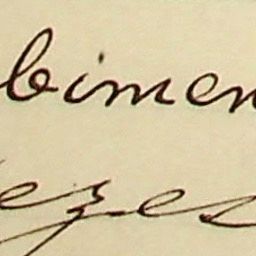 bimen
ezes